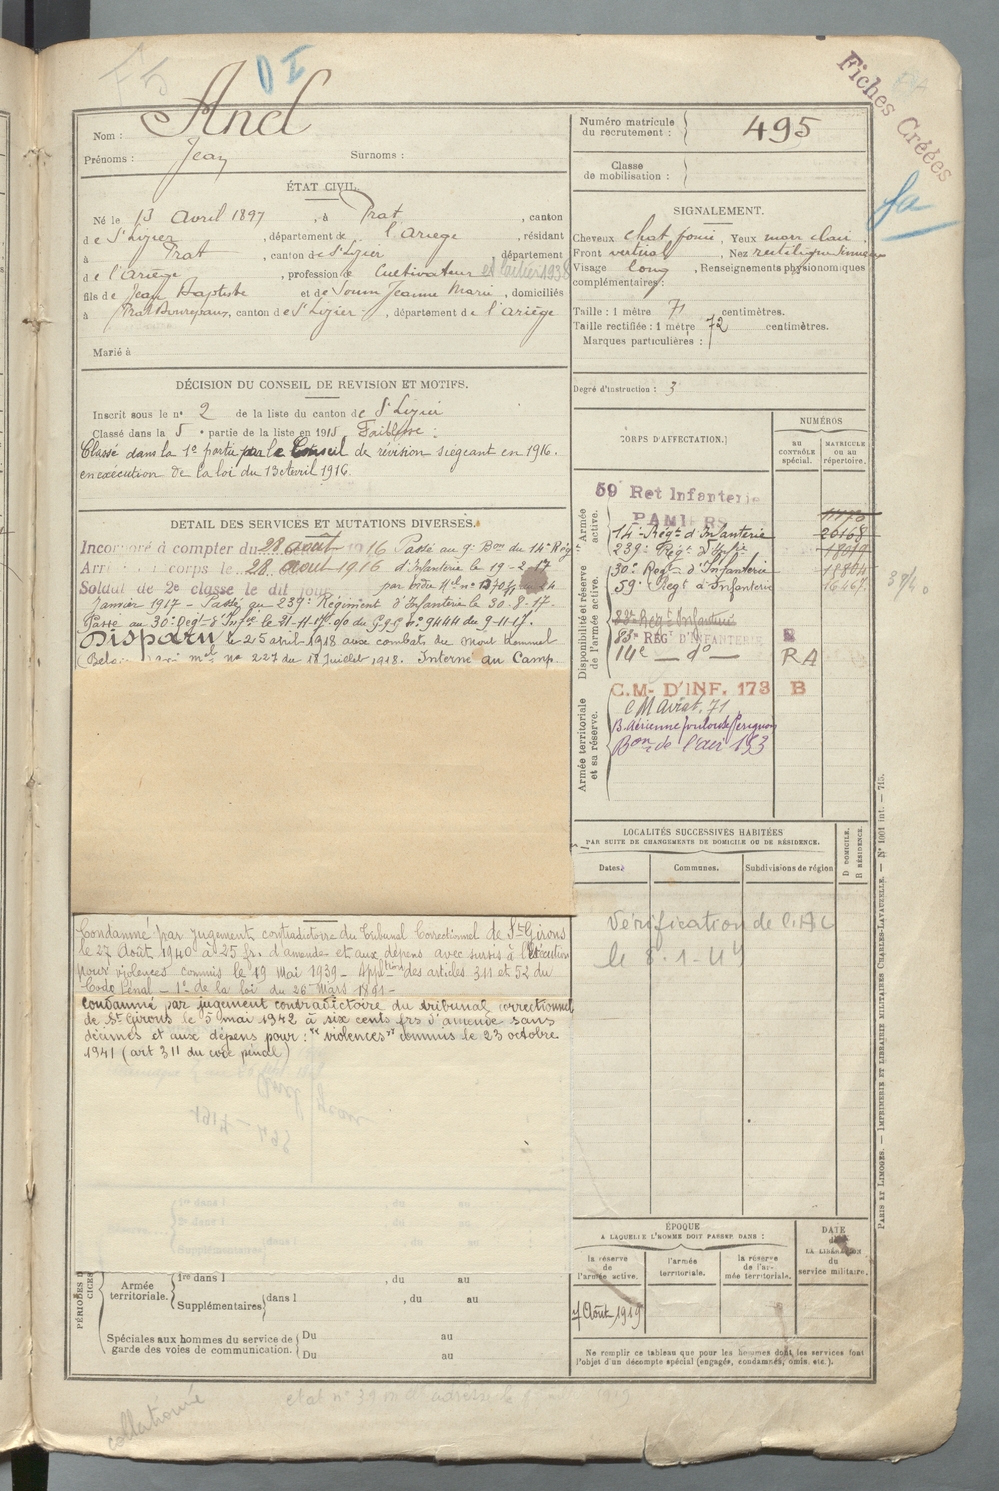 D I
Fiches Créées
Ancl
Nom :
Prénoms : Jean Surnoms :
ÉTAT CIVIL.
Né le 13 Avril 1897, à Prat, canton
de St Lizier, département de l'Ariège, résidant
à Prat, canton de St Lizier, département
de l'Ariège, profession de Cultivateur
fils de Jean Baptiste et de Soum Jeanne Marie, domiciliés
à Prat Bonrepaux, canton de St Lizier, département de l'Ariège
Marié à
DÉCISION DU CONSEIL DE REVISION ET MOTIFS.
Inscrit sous le n° 2 de la liste du canton de St Lizier
Classé dans la 5e partie de la liste en 1915 Faiblesse :
Classé dans la 1e partie par le Conseil de révision siégeant en 1916.
en exécution de la loi du 13 avril 1916.
DETAIL DES SERVICES ET MUTATIONS DIVERSES.
Incorporé à compter du 28 août 1916 Passé au 9e Bon du 14e Rég
Arrivé au corps le 28 août 1916 d'Infanterie le 19-2-17
Soldat de 2e classe le dit jour par ordre
Janvier 1917 - Passé au 239e Régiment d'Infanterie le 30-8-17.
Passé au 30e Régt d'Infie le 21-11-17 o/o du G.Q.G. n° 9444 du 9-11-17.
Disparu le 25 avril 1918 aux combats du Mont Kemmel
n° 227 du 18 Juillet 1918. Interné au Camp
Condamné par jugement contradictoire du Tribunal Correctionnel de St Girons
le 27 Août 1940 à 25 fr. d'amende et aux dépens avec sursis à l'exécution
pour violences commis le 19 Mai 1939 - Application des articles 311 et 52 du
Code Pénal - 1er de la loi du 26 Mars 1891 -
Condamné par jugement contradictoire du tribunal correctionnel
de St Girons le 5 mai 1942 à six cents frs d'amende sans
décimes et aux dépens pour : "violences" commis le 23 octobre
1941 (art 311 du code pénal)
PÉRIODES
Armée territoriale.
1re dans l , du au
Supplémentaires dans l , du au
Spéciales aux hommes du service de garde des voies de communication.
Du au
Du au
Numéro matricule du recrutement : 495
Classe de mobilisation :
SIGNALEMENT.
Cheveux chat foncé, Yeux marr clair,
Front vertical, Nez rectiligne
Visage long, Renseignements physionomiques
complémentaires :
Taille : 1 mètre 71 centimètres.
Taille rectifiée : 1 mètre 72 centimètres.
Marques particulières :
Degré d'instruction : 3
CORPS D'AFFECTATION.
NUMÉROS
AU CONTRÔLE spécial.
MATRICULE OU AU répertoire.
Armée active.
59 Ret Infanterie
PAMIERS
14e Régt d'Infanterie 20168
239e Régt d'Infie
30e Regt d'Infanterie 18804
59e Regt d'Infanterie 16467
Disponibilité et réserve de l'armée active.
83e Regt Infanterie
83e REGT D'INFANTERIE R
14e — do — R A
Armée territoriale et sa réserve.
C.M- D'INF. 173 B
C M Aviat. 71
B. Aérienne Toulouse
Bon de l'air 153
LOCALITÉS SUCCESSIVES HABITÉES
PAR SUITE DE CHANGEMENTS DE DOMICILE OU DE RÉSIDENCE.
Dates. Communes. Subdivisions de région
D DOMICILE. R RÉSIDENCE.
Vérification de
le 8-1-44
ÉPOQUE
A LAQUELLE L'HOMME DOIT PASSER DANS :
la réserve de l'armée active.
l'armée territoriale.
la réserve de l'armée territoriale.
DATE de LA LIBÉRATION du service militaire.
7 Août 1919
Ne remplir ce tableau que pour les hommes dont les services font
l'objet d'un décompte spécial (engagés, condamnés, omis, etc.).
PARIS ET LIMOGES. — IMPRIMERIE ET LIBRAIRIE MILITAIRES CHARLES-LAVAUZELLE. — N° 1001 int. — 715.
collationné